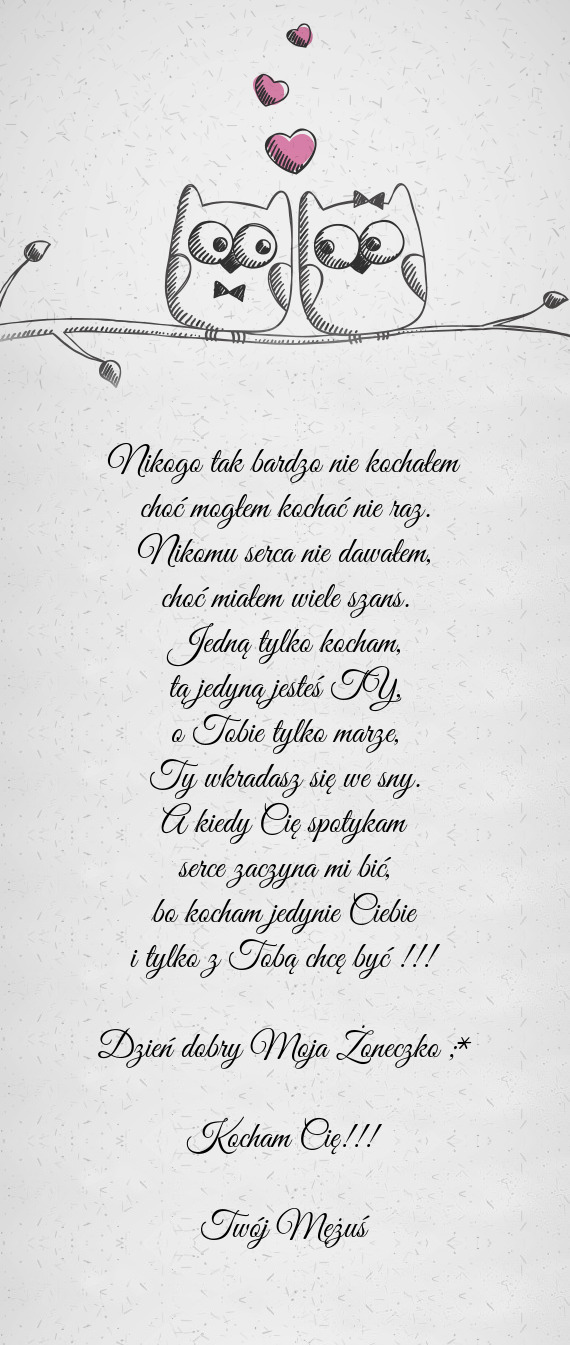 Nikogo tak bardzo nie kochałem
choć mogłem kochać nie raz.
Nikomu serca nie dawałem,
choć miałem wiele szans.
Jedną tylko kocham,
tą jedyną jesteś TY,
o Tobie tylko marze,
Ty wkradasz się we sny.
A kiedy Cię spotykam
serce zaczyna mi bić,
bo kocham jedynie Ciebie
i tylko z Tobą chcę być !!!
Dzień dobry Moja Żoneczko ;*
Kocham Cię!!!
Twój Mężuś